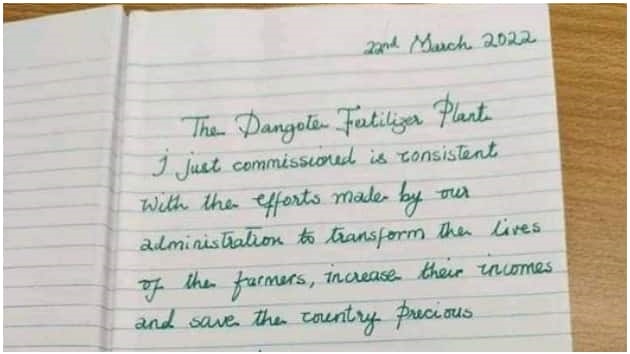 22nd March 2022
The Dangote Fertilizer Plant
I just commissioned is consistent
with the efforts made by our
administration to transform the lives
of the farmers, increase their incomes
and save the country precious